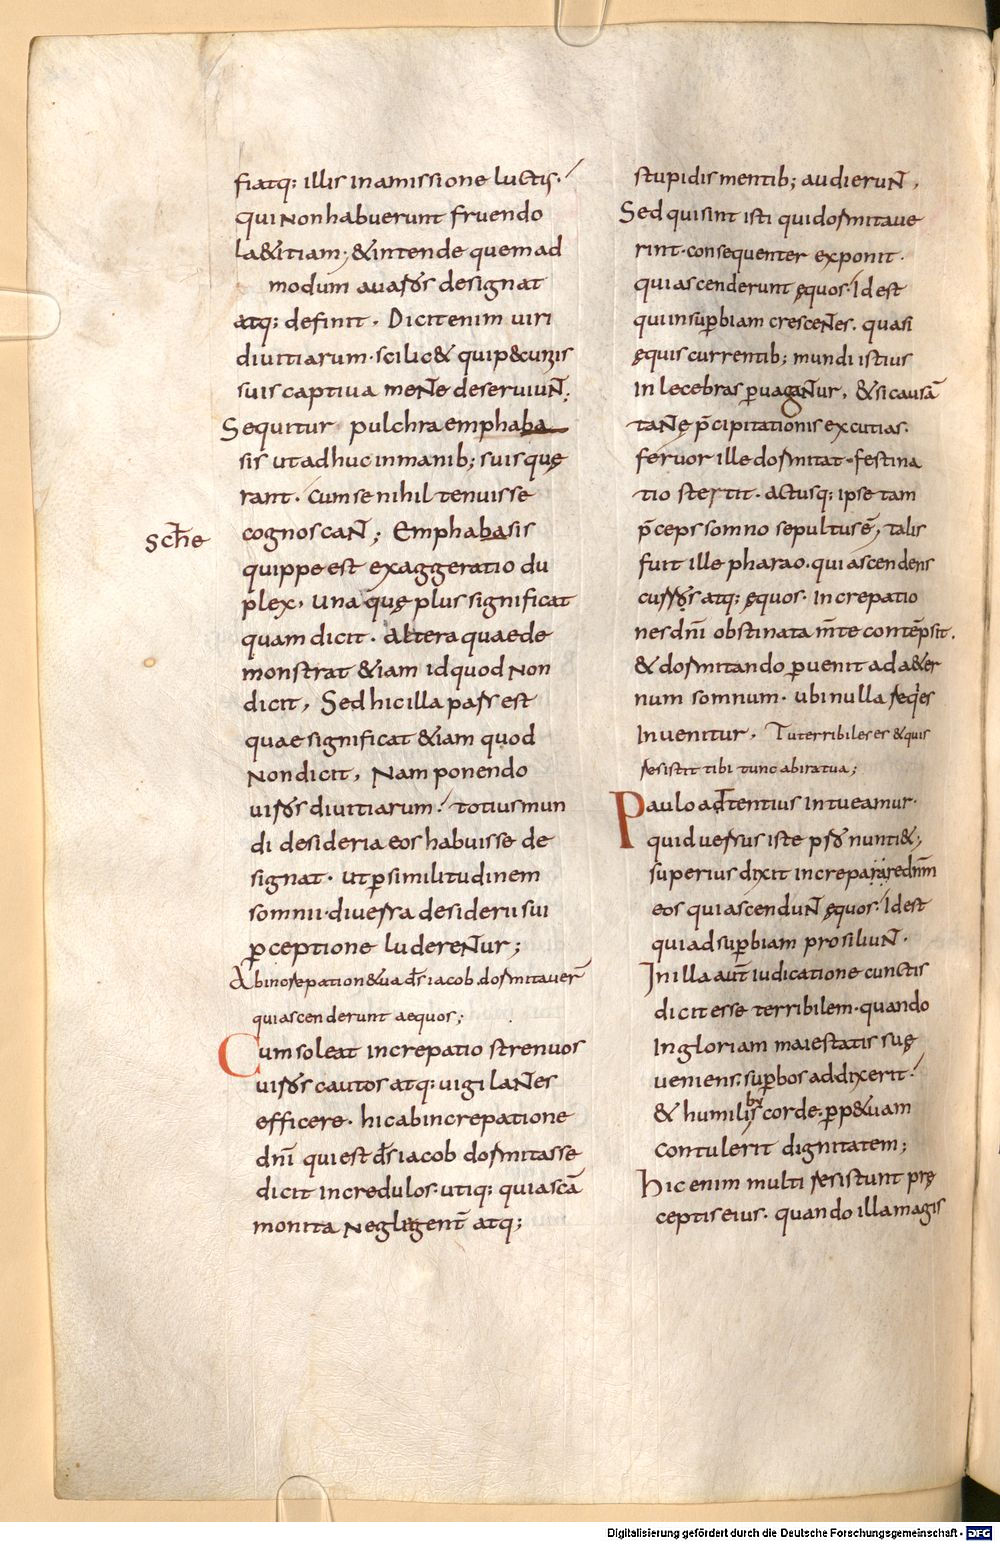 fiatq: illis in amissione luctis.
qui non habuerunt fruendo
la&itiam; & intende quem ad
modum auaros designat
atq: definit. Dicit enim uiri
diuitiarum. scilic& qui p&cuniis
suis captiua mente deseruiunt;
Sequitur pulchra emphaba
sis ut adhuc in manib; suis quę
rant. Cum se nihil tenuisse
cognoscant; Emphabasis
sche
quippe est exaggeratio du
plex, una quę plus significat
quam dicit. altera quae de
monstrat &iam id quod non
dicit, Sed hic illa pars est
quae significat &iam quod
non dicit, Nam ponendo
uiros diuitiarum. totius mun
di desideria eos habuisse de
signat. ut p similitudinem
somnii. diuersa desiderii sui
pceptione luderentur;
Ab increpation& ua ds iacob dormitauer̄
qui ascenderunt aequos;
Cum soleat increpatio strenuos
uiros cautos atq: uigilantes
efficere. hic ab increpatione
dn̄i qui est ds iacob dormitasse
dicit incredulos. utiq: qui ascā
monita neglegent̄ atq;
stupidis mentib; audierunt,
Sed qui sint isti qui dormitaue
rint. consequenter exponit.
qui ascenderunt ęquos. Id est
qui in supbiam crescentes. quasi
ęquis currentib; mundi istius
inlecebras puagantur, & si causā
tantę p̄cipitationis excutias.
feruor ille dormitat. festina
tio stertit. actusq: ipse tam
p̄ceps somno sepultus ē, talis
fuit ille pharao. qui ascendens
currus atq: ęquos. increpatio
nes dn̄i obstinata m̄te contēpsit.
& dormitando puenit ad a&er
num somnum. ubi nulla req̄es
inuenitur, Tu terribiles er & quis
resistit tibi tunc ab ira tua;
Paulo adtentius intueamur.
quid uersus iste psō nunti&;
superius dixit increpare dn̄m
eos qui ascendunt ęquos. Id est
qui ad supbiam prosiliunt.
In illa aut̄ iudicatione cunctis
dicit esse terribilem. quando
in gloriam maiestatis suę
ueniens. supbos addixerit.
& humilibus corde. pp&uam
contulerit dignitatem;
Hic enim multi resistunt prę
ceptis eius. quando illa magis
Digitalisierung gefördert durch die Deutsche Forschungsgemeinschaft - DFG